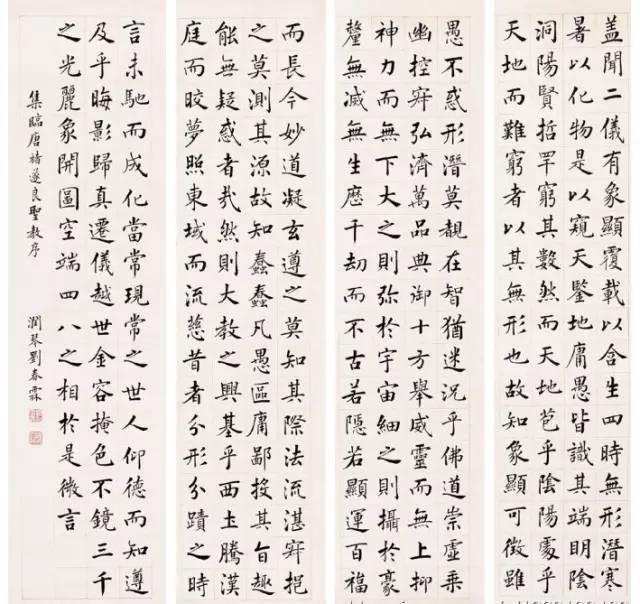 盖聞二儀有象顯覆載以含生四時無形潛寒
暑以化物是以窺天鑒地庸愚皆識其端明陰
洞陽賢哲罕窮其數然而天地苞乎陰陽處乎
天地而難窮者以其無形也故知象顯可徵雖
愚不惑形潛莫覩在智猶迷況乎佛道崇虛乘
幽控寂弘濟萬品典御十方舉威靈而無上抑
神力而無下大之則弥於宇宙細之則攝於豪
釐無滅無生歷千劫而不古若隱若顯運百福
而長今妙道凝玄遵之莫知其際法流湛寂挹
之莫測其源故知蠢蠢凡愚區庸鄙投其旨趣
能無疑惑者哉然則大教之興基乎西土騰漢
庭而皎夢照東域而流慈昔者分形分蹟之時
言未馳而成化當常現常之世人仰德而知遵
及乎晦影歸真遷儀越世金容掩色不鏡三千
之光麗象開圖空端四八之相於是微言
集臨唐褚遂良聖教序
潤琴劉春霖